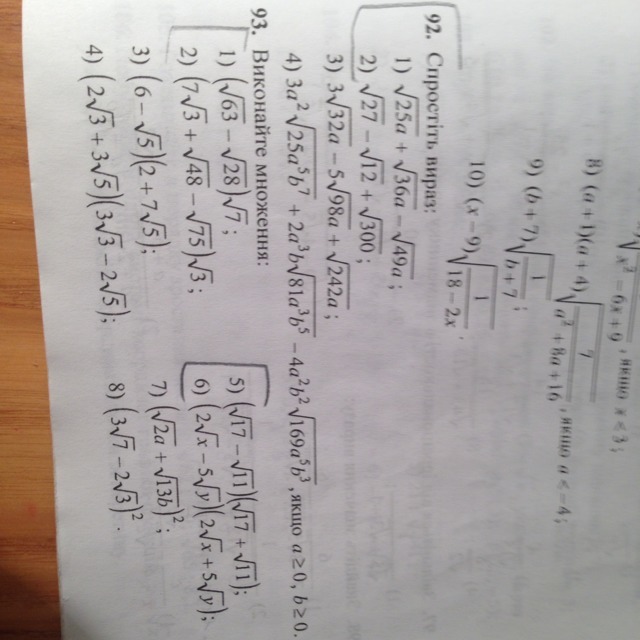 √x² − 6x + 9 , якщо x < 3;
8) (a + 1)(a + 4)√(7/(a² + 8a + 16)) , якщо a < −4;
9) (b + 7)√(1/(b + 7)) ;
10) (x − 9)√(1/(18 − 2x)) .
92. Спростіть вираз:
1) √25a + √36a − √49a ;
2) √27 − √12 + √300 ;
3) 3√32a − 5√98a + √242a ;
4) 3a²√25a⁵b⁷ + 2a³b√81a³b⁵ − 4a²b²√169a⁵b³ , якщо a ≥ 0, b ≥ 0.
93. Виконайте множення:
1) (√63 − √28)√7 ;
2) (7√3 + √48 − √75)√3 ;
3) (6 − √5)(2 + 7√5);
4) (2√3 + 3√5)(3√3 − 2√5);
5) (√17 − √11)(√17 + √11);
6) (2√x − 5√y)(2√x + 5√y);
7) (√2a + √13b)² ;
8) (3√7 − 2√3)² .